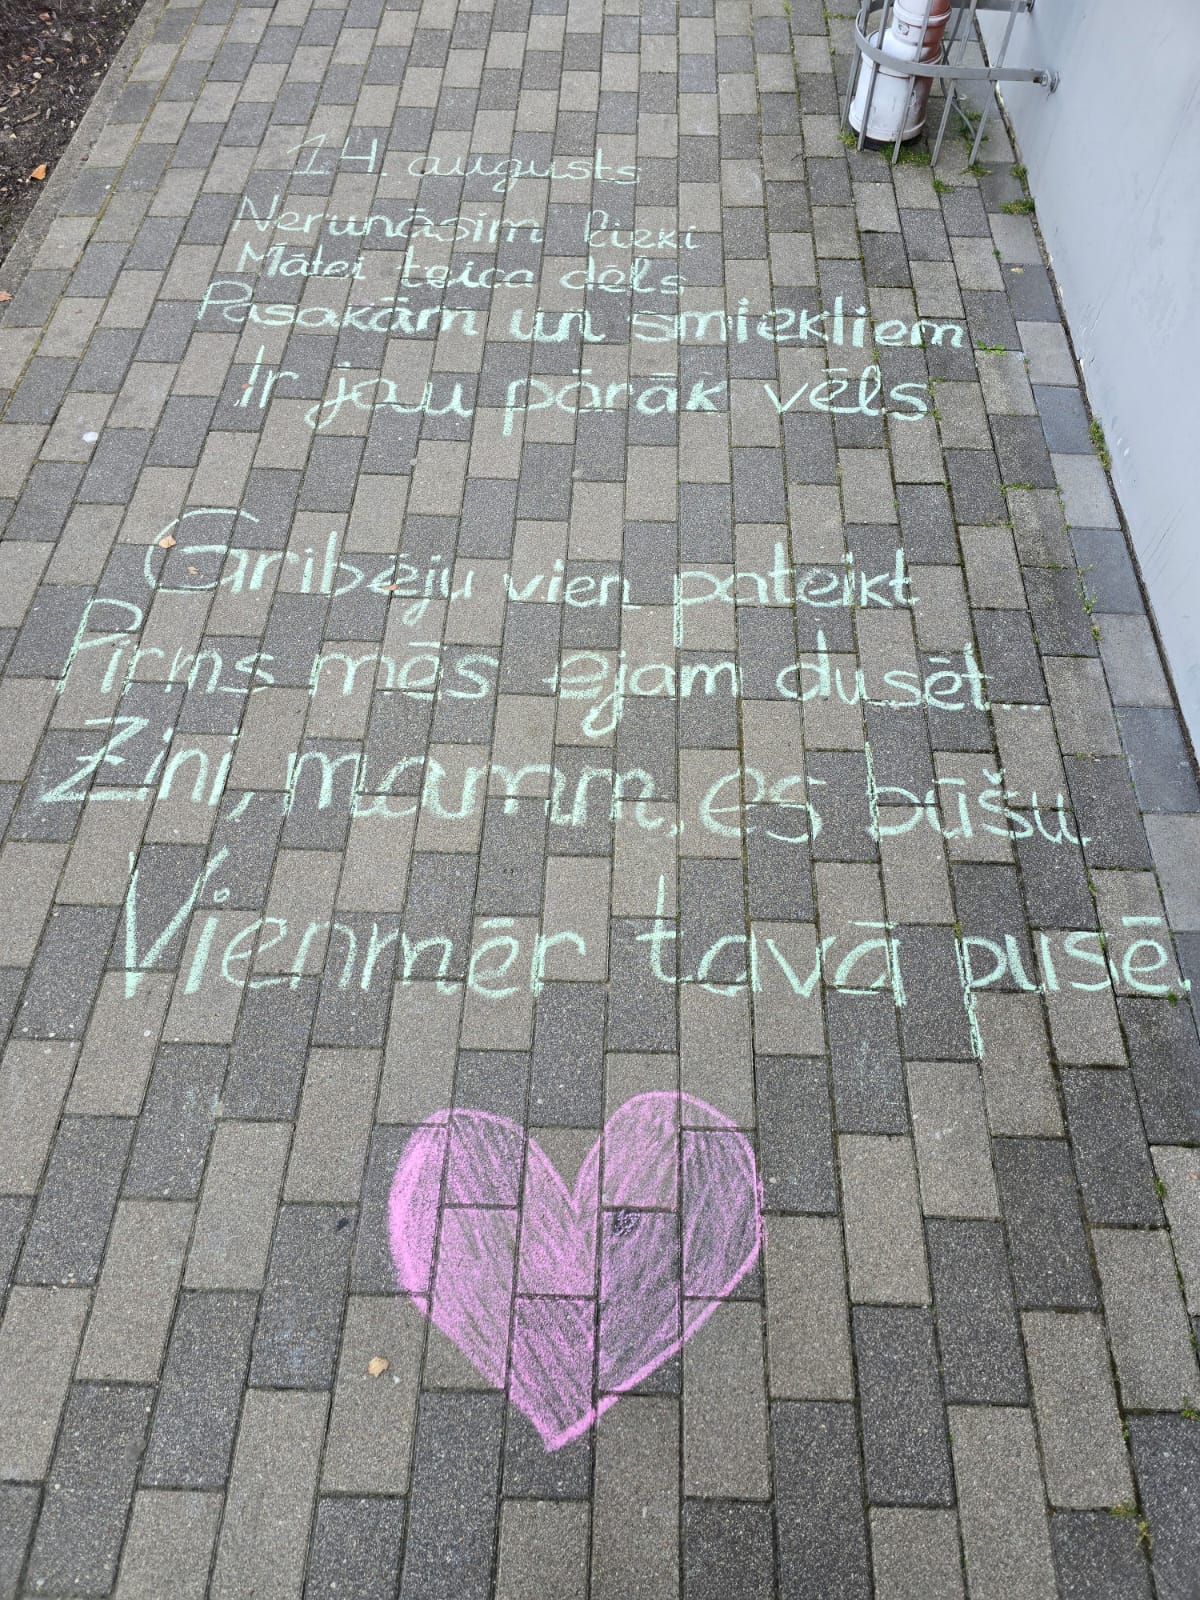 14. augusts
Nerunāsim lieki
Mātei teica dēls
Pasakām un smiekliem
Ir jau pārāk vēls
Gribēju vien pateikt
Pirms mēs ejam dusēt...
Zini, mamm, es būšu
Vienmēr tavā pusē.